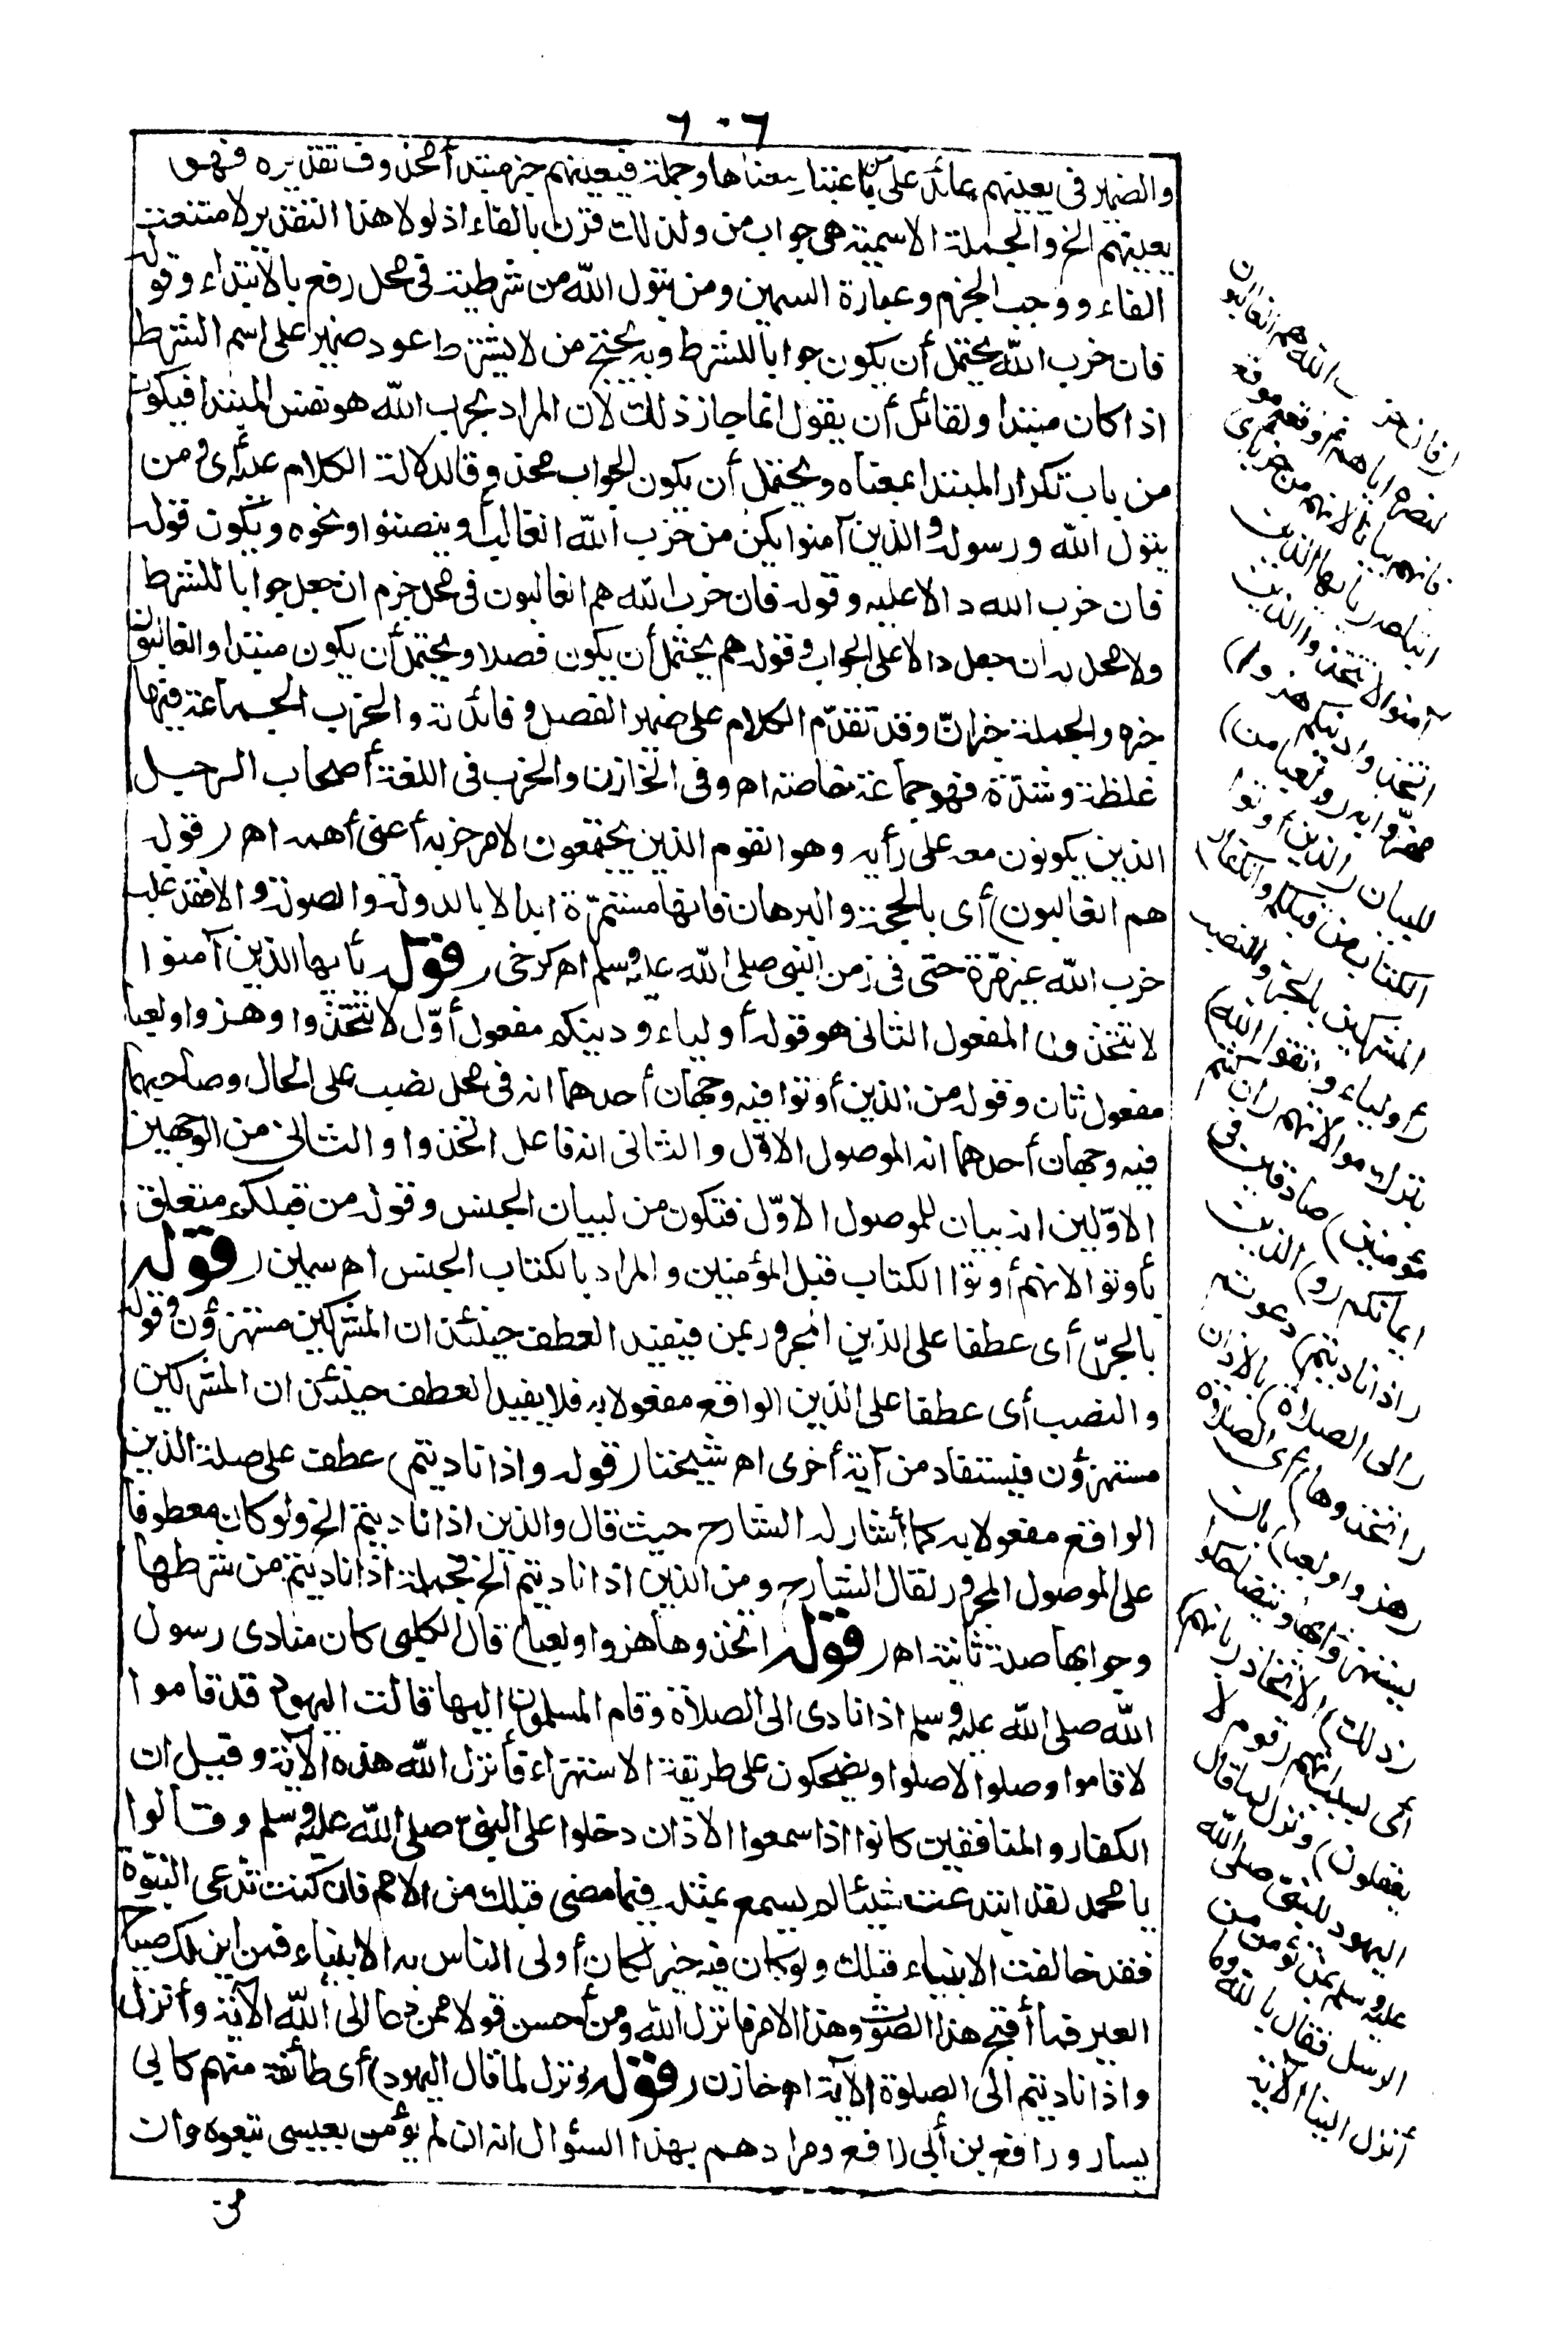 ٦٠٦
والضمير فى يعينهم عائد على من باعتبار معناها وجملة فيعينهم خبر مبتدأ محذوف تقديره فهو
يعينهم الخ والجملة الاسمية هى جواب من ولذلك قرن بالفاء اذ لولا هذا التقدير لامتنعت
الفاء ووجب الجزم وعبارة السمين ومن يتول الله من شرطية فى محل رفع بالابتداء وقوله
فان حزب الله يحتمل أن يكون جوابا للشرط وبه يحتج من لا يشترط عود ضمير على اسم الشرط
اذا كان مبتدا ولقائل أن يقول انما جاز ذلك لان المراد بحزب الله هو نفس المبتدا فيكون
من باب تكرار المبتدا بمعناه ويحتمل أن يكون الجواب محذوفا لدلالة الكلام عليه أى ومن
يتول الله ورسوله والذين آمنوا يكن من حزب الله الغالب أو ينصتوا ونحوه ويكون قوله
فان حزب الله دالا عليه وقوله فان حزب الله هم الغالبون فى محل جزم ان جعل جوابا للشرط
ولا محل له ان جعل دالا على الجواب وقوله هم يحتمل أن يكون فصلا ويحتمل أن يكون مبتدا والغالبون
خبره والجملة خبر ان وقد تقدم الكلام على ضمير الفصل وفائدته والحزب الجماعة فيها
غلظة وشدة فهو جماعة خاصة اه وفى الخازن والحزب فى اللغة أصحاب الرجل
الذين يكونون معه على رأيه وهو القوم الذين يجتمعون لامر حزبه أعنى أهمه اه (قوله
هم الغالبون) أى بالحجة والبرهان فانها مستمرة ابدا لا بالدولة والصولة والا فقد غلب
حزب الله غير مرة حتى فى زمن النبى صلى الله عليه وسلم اه كرخى (قوله يأيها الذين آمنوا
لا تتخذوا) المفعول الثانى هو قوله أولياء ودينكم مفعول أول لاتتخذوا وهزوا ولعبا
مفعول ثان وقوله من الذين أوتوا فيه وجهان أحدهما انه فى محل نصب على الحال وصاحبها
فيه وجهان أحدهما انه الموصول الاول والثانى انه فاعل اتخذوا والثانى من الوجهين
الاولين انه بيان للموصول الاول فتكون من لبيان الجنس وقوله من قبلكم متعلق
بأوتوا لانهم أوتوا الكتاب قبل المؤمنين والمراد بالكتاب الجنس اه سمين (قوله
بالجر) أى عطفا على الذين المجرور بمن فيفيد العطف حينئذ ان المشركين مستهزؤن وقوله
والنصب أى عطفا على الذين الواقع مفعولا به فلا يفيد العطف حينئذ ان المشركين
مستهزؤن فيستفاد من آية أخرى اه شيخنا (قوله واذا ناديتم) عطف على صلة الذين
الواقع مفعولا به كما أشار له الشارح حيث قال والذين اذا ناديتم الخ ولو كان معطوفا
على الموصول المجرور لقال الشارح ومن الذين اذا ناديتم الخ فجملة اذا ناديتم من شرطها
وجوابها صلة ثانية اه (قوله اتخذوها هزوا ولعبا) قال الكلبى كان منادى رسول
الله صلى الله عليه وسلم اذا نادى الى الصلاة وقام المسلمون اليها قالت اليهود قد قاموا
لا قاموا وصلوا لا صلوا ويضحكون على طريقة الاستهزاء فأنزل الله هذه الآية وقيل ان
الكفار والمنافقين كانوا اذا سمعوا الاذان دخلوا على النبى صلى الله عليه وسلم وقالوا
يا محمد لقد ابتدعت شيئا لم يسمع بمثله فيما مضى قبلك من الامم فان كنت تدعى النبوة
فقد خالفت الانبياء قبلك ولو كان فيه خير لكان أولى الناس به الانبياء فمن اين لك صياح
العير فما أقبح هذا الصوت وهذا الامر فانزل الله ومن أحسن قولا ممن دعا الى الله الآية وأنزل
واذا ناديتم الى الصلوة الآية اه خازن (قوله ونزل لما قال اليهود) أى طائفة منهم كابى
يسار ورافع بن أبى رافع ومرادهم بهذا السؤال انه ان لم يؤمن بعيسى تبعوه وان
(فان حزب الله هم الغالبون)
لنصره اياهم وقعه موقع
فانهم بيانا لانهم من حزبه أى
اتباعه (يأيها الذين
آمنوا لا تتخذوا الذين
اتخذوا دينكم هزوا)
مهزوا به (ولعبا من)
للبيان (الذين أوتوا
الكتاب من قبلكم والكفار)
المشركين بالجر والنصب
(أولياء واتقوا الله)
بترك موالاتهم (ان كنتم
مؤمنين) صادقين فى
ايمانكم (و) الذين
(اذا ناديتم) دعوتم
(الى الصلاة) بالاذان
(اتخذوها) أى الصلاة
(هزوا ولعبا) بان
يستهزؤا بها ويتضاحكوا
(ذلك) الاتخاذ (بانهم)
أى بسبب انهم (قوم لا
يعقلون) ونزل لما قال
اليهود للنبى صلى الله
عليه وسلم بمن تؤمن من
الرسل فقال بالله وما
أنزل الينا الآية